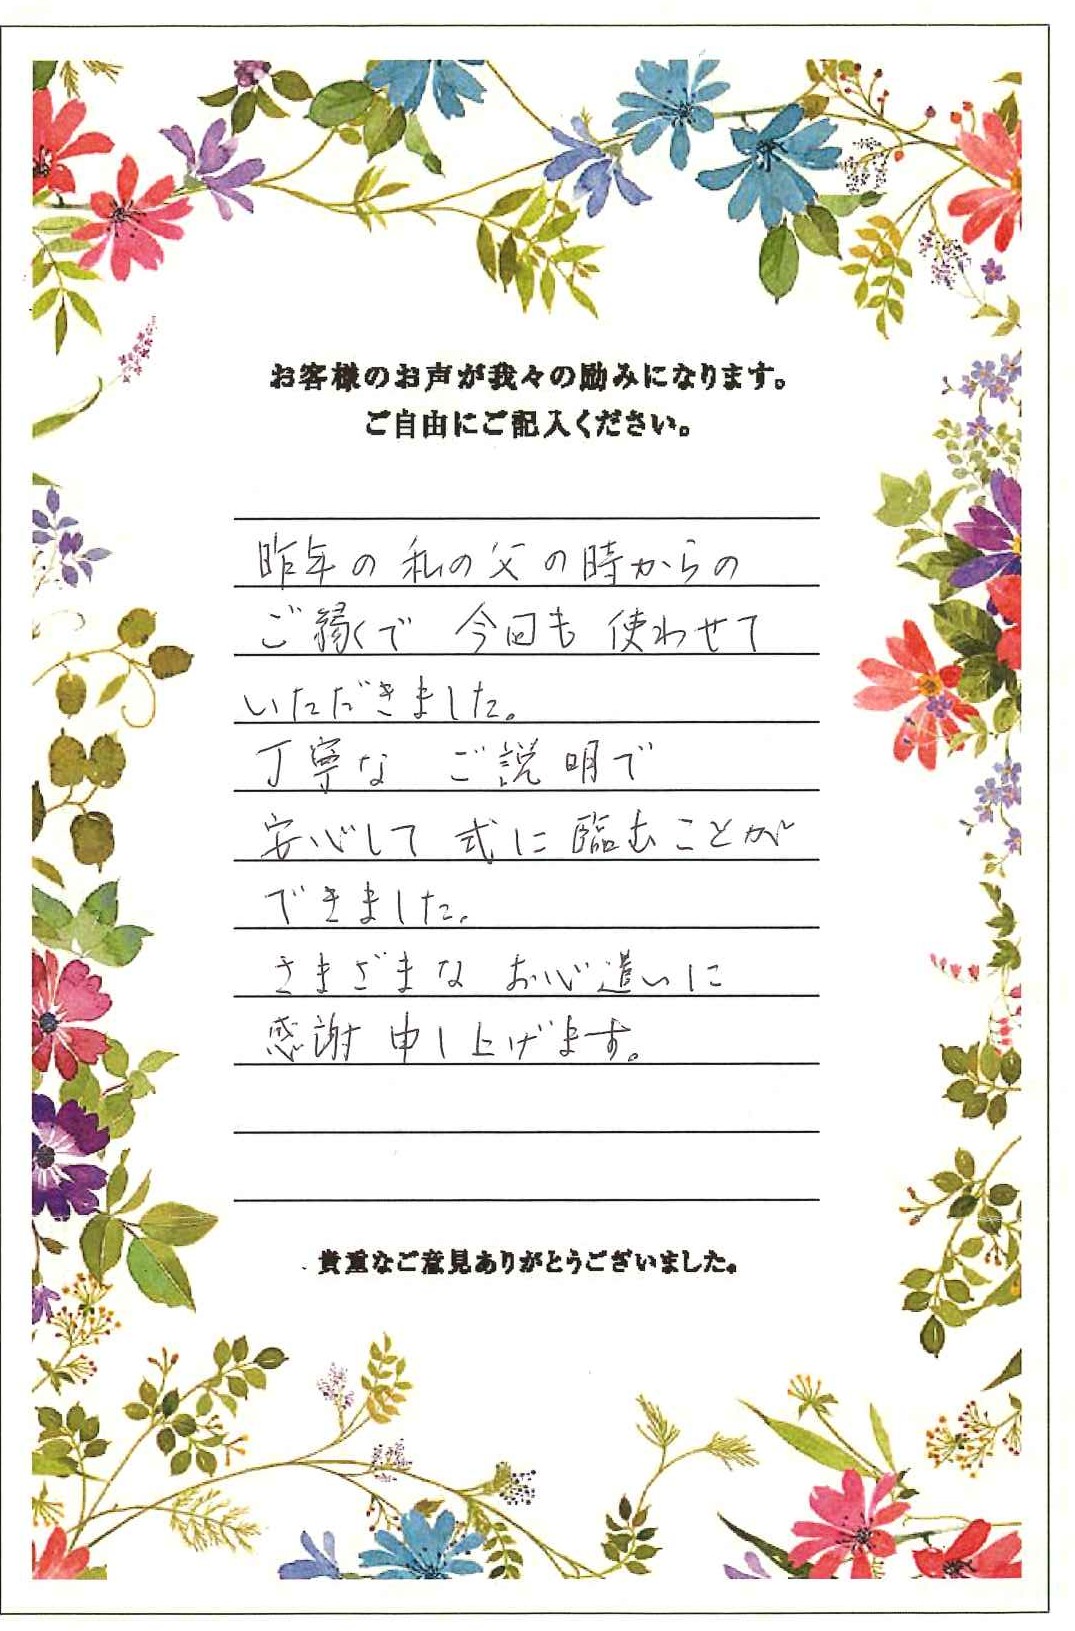 お客様のお声が我々の励みになります。
ご自由にご記入ください。
昨年の私の父の時からの
ご縁で 今回も 使わせて
いただきました。
丁寧な ご説明で
安心して 式に臨むことが
できました。
さまざまな お心遣いに
感謝申し上げます。
貴重なご意見ありがとうございました。